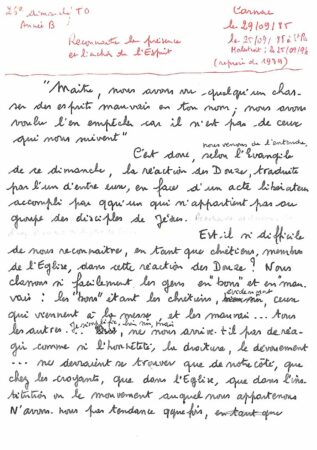 26e dimanche T.O
Année B
Carnac
le 29/09/85
Reconnaître la présence
et l'action de l'Esprit
le 25/09/88 à
Malestroit : le 25/09/94
(repris de 1979)
"Maître, nous avons vu quelqu'un chas-
ser des esprits mauvais en ton nom ; nous avons
voulu l'en empêcher car il n'est pas de ceux
qui nous suivent"
nous venons de l'entendre,
C'est donc, selon l'Evangile
de ce dimanche, la réaction des Douze, traduite
par l'un d'entre eux, en face d'un acte libérateur
accompli par qqu'un qui n'appartient pas au
groupe des disciples de Jésus.
Est-il si difficile
de nous reconnaître, en tant que chrétiens, membres
de l'Eglise, dans cette réaction des Douze ? Nous
classons si facilement les gens en "bons" et en mau-
vais : les "bons" étant les chrétiens, évidemment
bien sûr, ceux
qui viennent à la messe et les mauvais ... tous
les autres. Je simplifie, bien sûr, mais
ne nous arrive-t-il pas de réa-
gir comme si l'honnêteté, la droiture, le dévouement
... ne devraient se trouver que de notre côté, que
chez les croyants, que dans l'Eglise, que dans l'ins-
titution ou le mouvement auquel nous appartenons
N'avons-nous pas tendance qquefois, en tant que